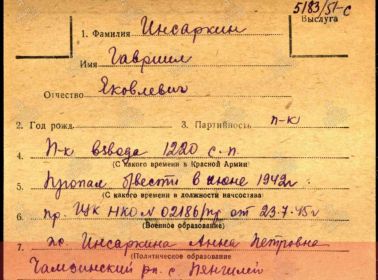 5183/51-с
Выслуга
1. Фамилия Инсаркин
Имя Гавриил
Отчество Яковлевич
2. Год рожд. 3. Партийность п-к
4. П-к взвода 1220 с.п.
(С какого времени в Красной Армии)
5. Пропал б/вести в июне 1942г.
(С какого времени в должности начсостава)
6. пр. ГУК НКО № 02186/пр от 23.7.45г
(Военное образование)
7. жс. Инсаркина Анна Петровна
(Политическое образование
Чамзинский рн. с. Пянгилей